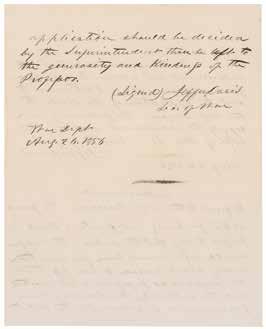 application should be decided
by the Superintendent than be left to
the generosity and kindness of the
Professor.
(Signed) Jeffn Davis
Sec. of War
War Dept.
Aug. 26. 1856